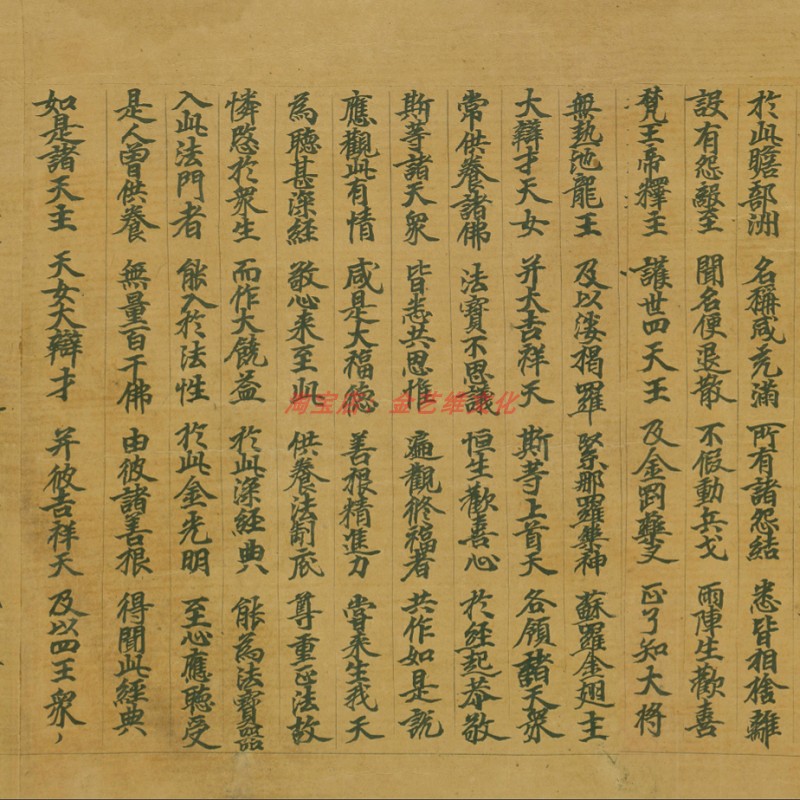 於此贍部洲 名稱咸充滿 所有諸怨結 悉皆相捨離
設有怨敵至 聞名便退散 不假動兵戈 兩陣生歡喜
梵王帝釋主 護世四天王 及金剛藥叉 正了知大將
無熱池龍王 及以娑揭羅 緊那羅樂神 蘇羅金翅主
大辯才天女 并大吉祥天 斯等上首天 各領諸天衆
常供養諸佛 法寶不思議 恒生歡喜心 於經起恭敬
斯等諸天衆 皆悉共思惟 遍觀修福者 共作如是說
應觀此有情 咸是大福德 善根精進力 當來生我天
為聽甚深經 敬心來至此 供養法制底 尊重正法故
憐愍於衆生 而作大饒益 於此深經典 能為法寶器
入此法門者 能入於法性 於此金光明 至心應聽受
是人曾供養 無量百千佛 由彼諸善根 得聞此經典
如是諸天主 天女大辯才 并彼吉祥天 及以四王衆
淘宝店 金艺缘文化